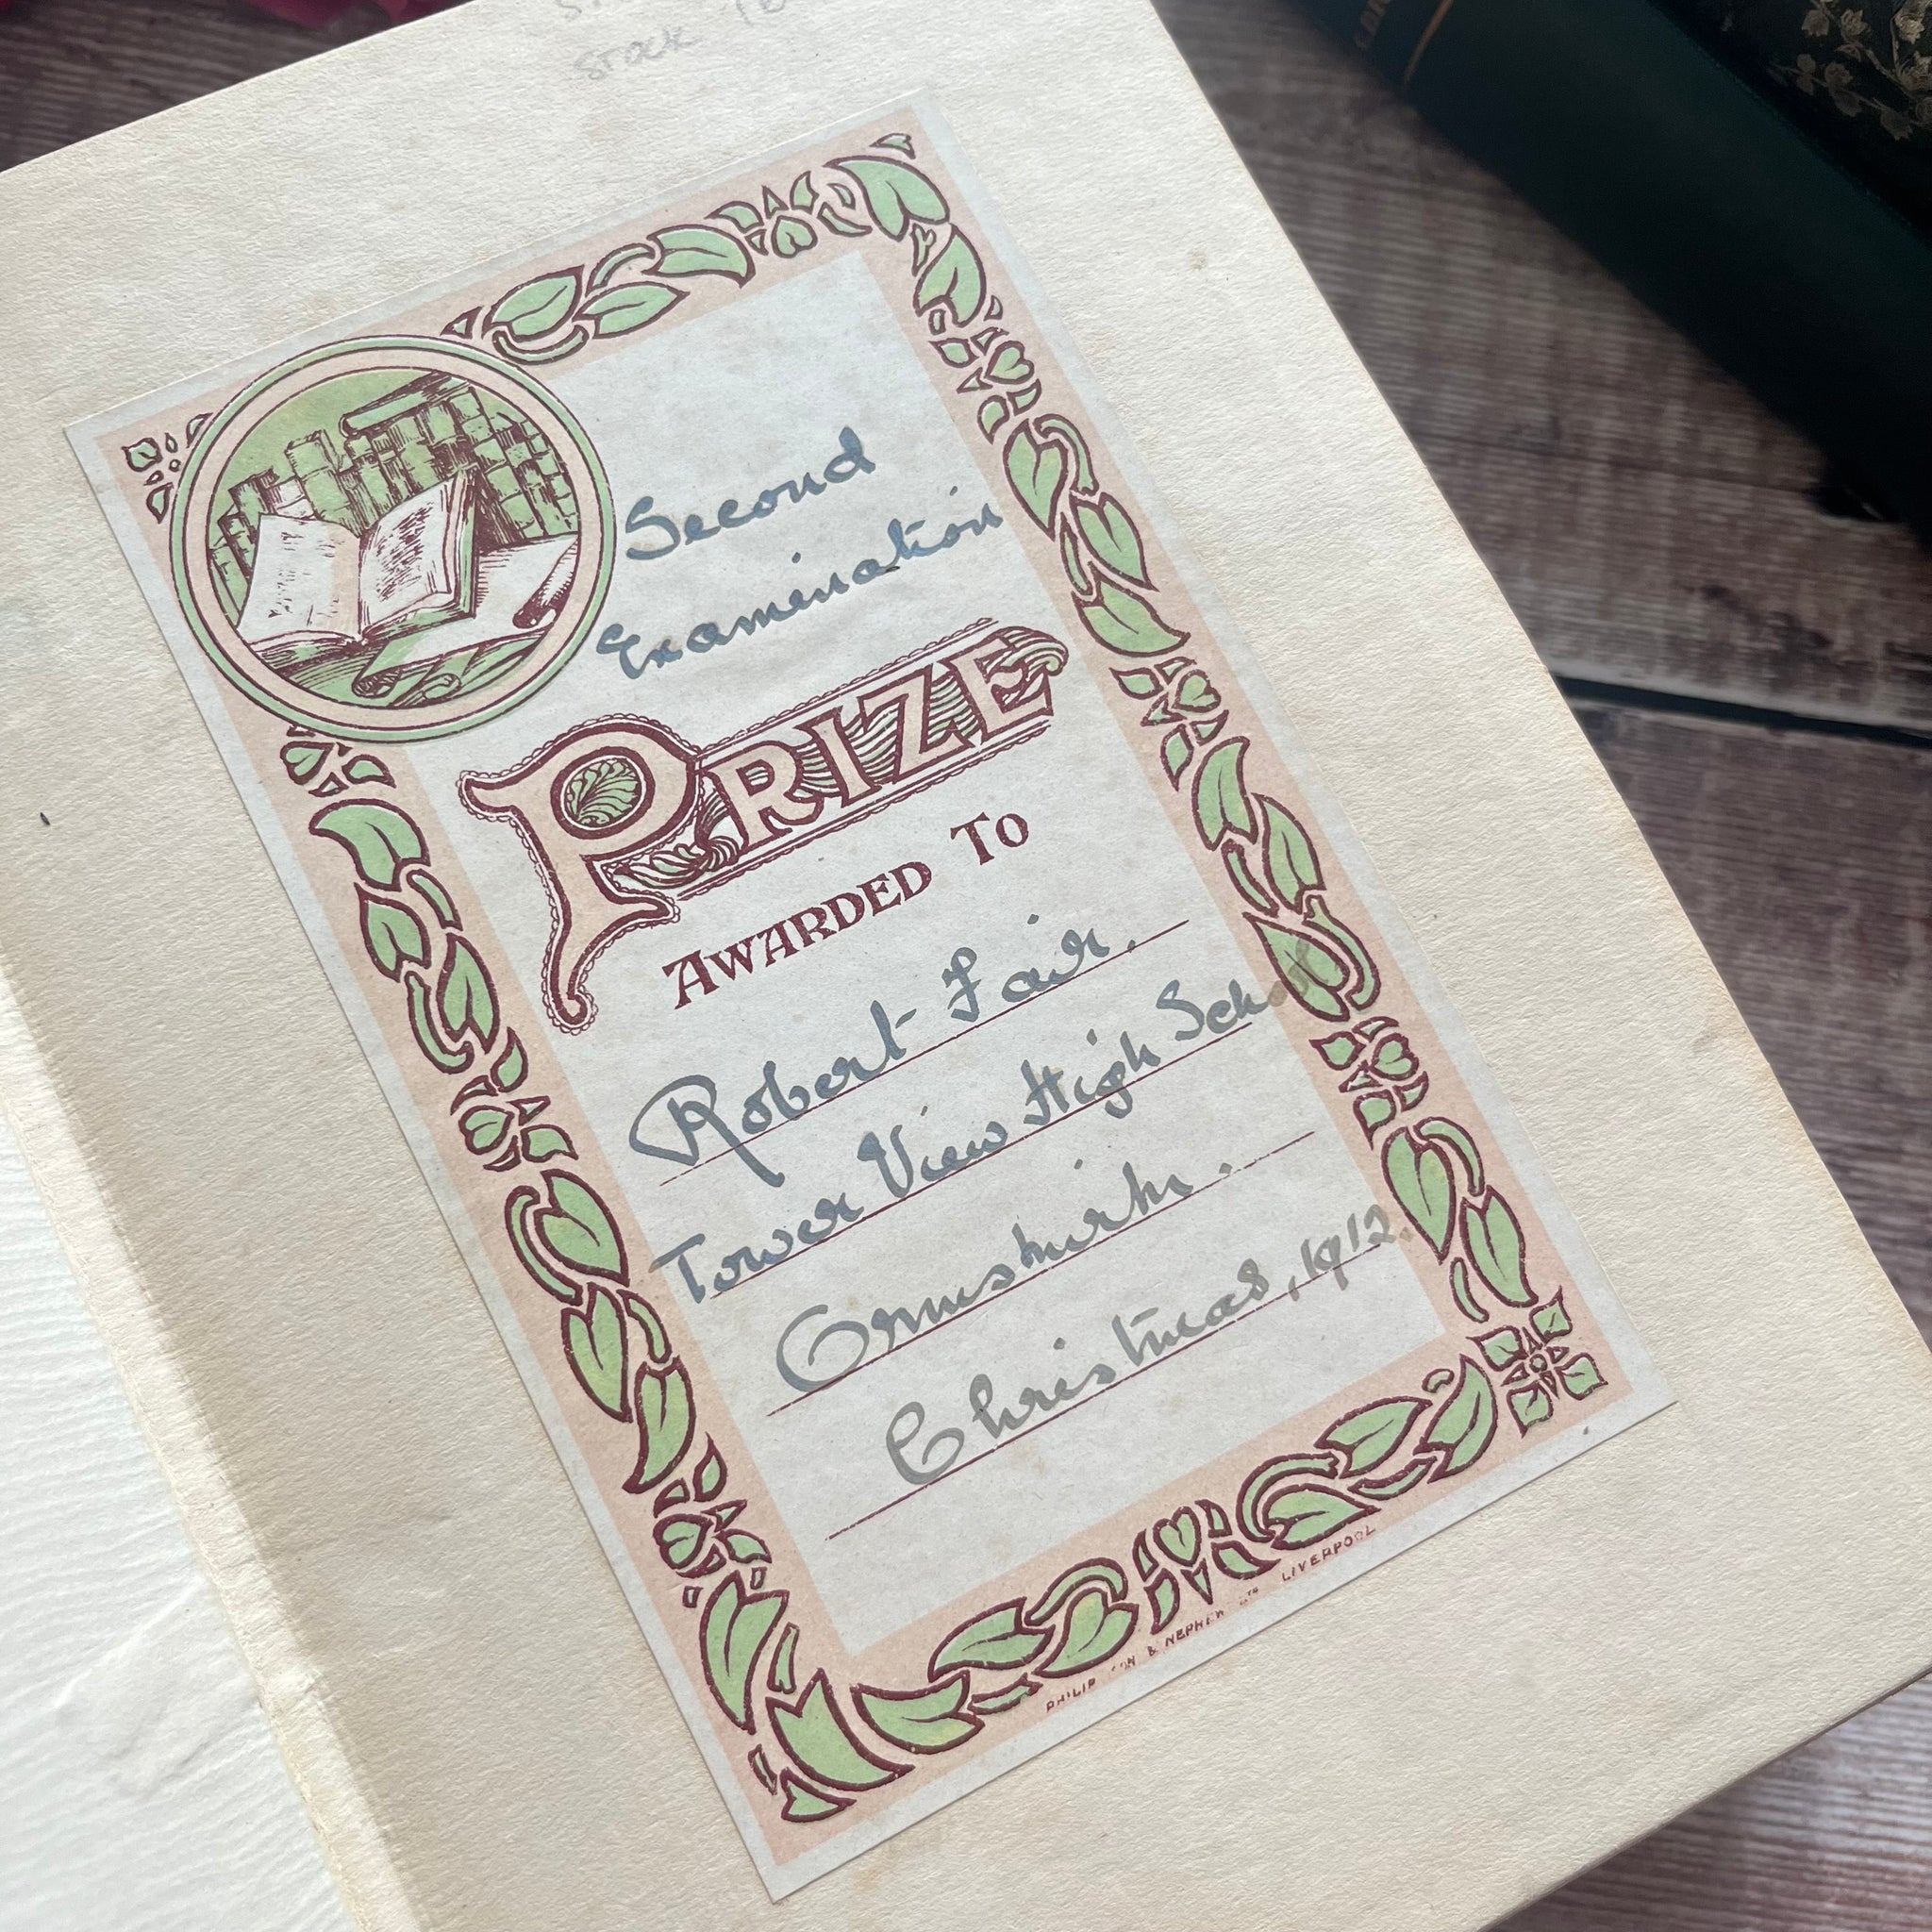 STOCK
Second
Examination
PRIZE
AWARDED TO
Robert Fair.
Tower View High School
Ormskirk.
Christmas, 1912.
PHILIP SON & NEPHEW LTD LIVERPOOL